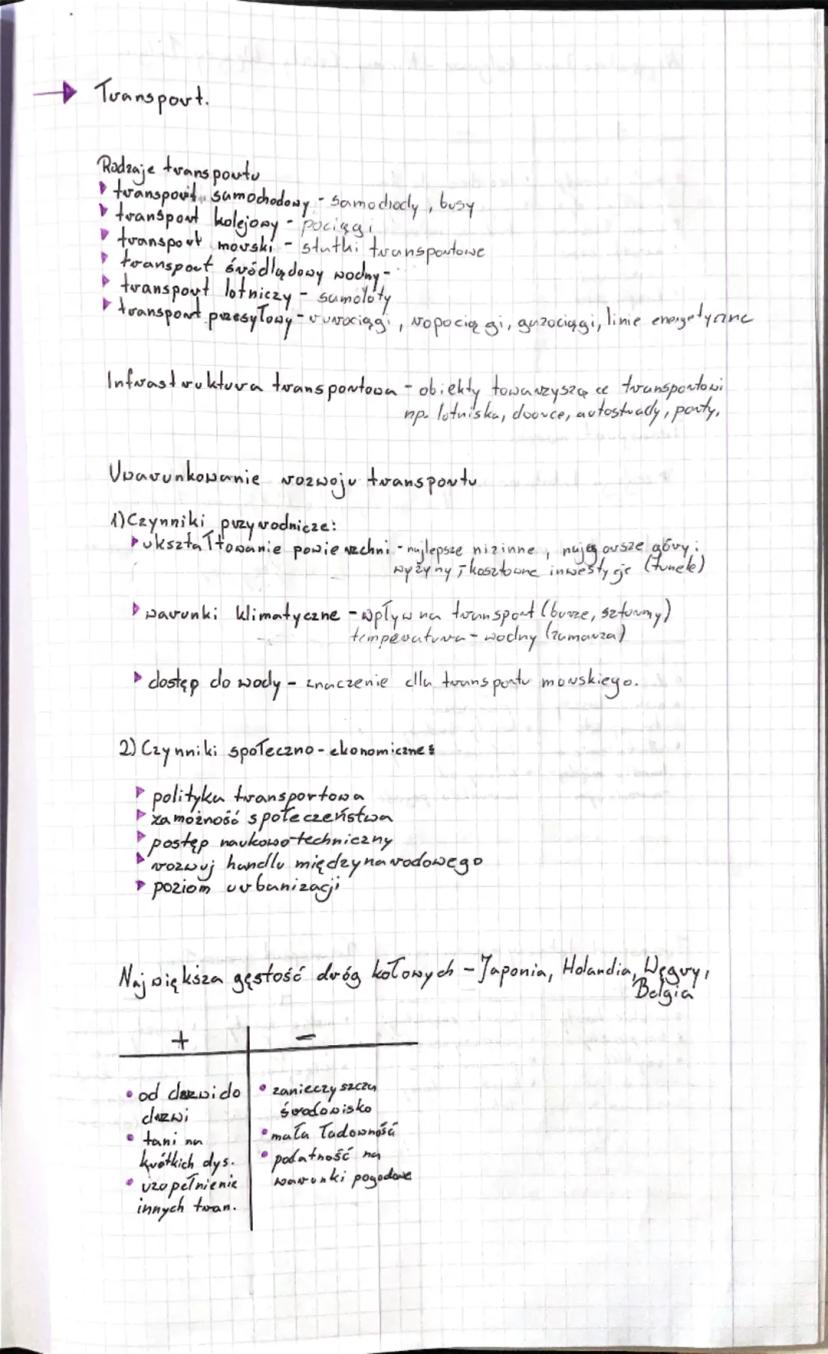 Transport.
Rodzaje transportu
transport samochodowy - samochody, busy
transport kolejowy - pociągi
transport morski - statki transportowe
transport śródlądowy wodny -
transport lotniczy - samoloty
transport przesyłowy - rurociągi, ropociągi, gazociągi, linie energetyczne
Infrastruktura transportowa - obiekty towarzyszące transportowi
np. lotniska, dworce, autostrady, porty,
Uwarunkowanie rozwoju transportu
1) Czynniki przyrodnicze:
ukształtowanie powierzchni - najlepsze nizinne, najgorsze góry i
wyżyny, kosztowne inwestycje (tunele)
warunki klimatyczne - wpływ na transport (burze, sztormy)
temperatura - wodny (zamarza)
dostęp do wody - znaczenie dla transportu morskiego.
2) Czynniki społeczno-ekonomiczne:
polityka transportowa
zamożność społeczeństwa
postęp naukowo-techniczny
rozwuj handlu międzynarodowego
poziom urbanizacji
Największa gęstość dróg kołowych - Japonia, Holandia, Węgry,
Belgia
+ -
• od drzwi do
drzwi
• tani na
krótkich dys.
• uzupełnienie
innych tran.
• zanieczyszcza
środowisko
• mała ładowność
• podatność na
warunki pogodowe